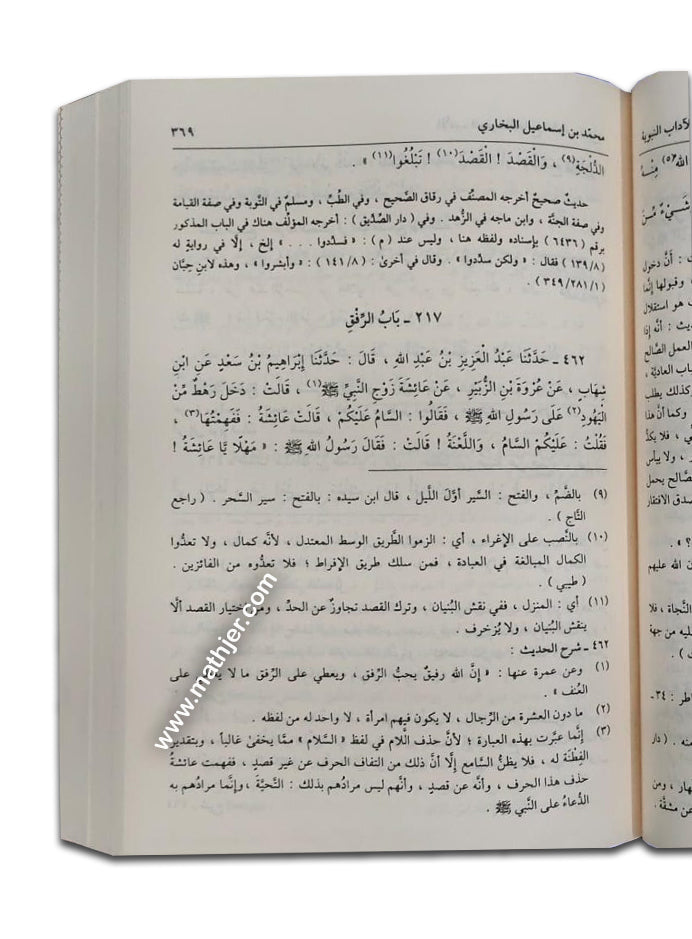 محمد بن إسماعيل البخاري ٣٦٩
الدُّلْجَةِ(٩) ، وَالْقَصْدَ ! الْقَصْدَ(١٠) ! تَبْلُغُوا(١١) » .
حديثٌ صحيحٌ أخرجه المصنّف في رقاق الصَّحيح ، وفي الطِّبِّ ، ومسلم في التَّوبة وفي صفة القيامة
وفي صفة الجنَّة ، وابن ماجه في الزُّهد . وفي ( دار الصِّدِّيق ) : أخرجه المؤلّف هناك في الباب المذكور
برقم ( ٦٤٣٦ ) بإسناده ولفظه هنا ، وليس عند ( م ) : « فسدِّدوا . . . » إلخ ، إلَّا في روايةٍ له
( ١٣٩/٨ ) فقال : « ولكن سدِّدوا » . وقال في أخرىٰ : ( ١٤١/٨ ) : « وأبشروا » ، وهذه لابن حِبَّان
( ٣٤٩/٢٨١/١ ) .
٢١٧ ـ بَابُ الرِّفْقِ
٤٦٢ ـ حَدَّثَنَا عَبْدُ الْعَزِيزِ بْنُ عَبْدِ اللهِ ، قَالَ : حَدَّثَنَا إِبْرَاهِيمُ بْنُ سَعْدٍ عَنِ ابْنِ
شِهَابٍ ، عَنْ عُرْوَةَ بْنِ الزُّبَيْرِ ، عَنْ عَائِشَةَ زَوْجِ النَّبِيِّ ﷺ(١) ، قَالَتْ : دَخَلَ رَهْطٌ مِنَ
الْيَهُودِ(٢) عَلَى رَسُولِ اللهِ ﷺ ، فَقَالُوا : السَّامُ عَلَيْكُمْ ، قَالَتْ عَائِشَةُ : فَفَهِمْتُهَا(٣) ،
فَقُلْتُ : عَلَيْكُمُ السَّامُ ، وَاللَّعْنَةُ ! قَالَتْ : فَقَالَ رَسُولُ اللهِ ﷺ : « مَهْلًا يَا عَائِشَةُ !
(٩) بالضَّمِّ ، والفتح : السَّير أوَّل اللَّيل ، قال ابن سيده : بالفتح : سير السَّحر . ( راجع
التَّاج ) .
(١٠) بالنَّصب على الإغراء ، أي : الزموا الطَّريق الوسط المعتدل ، لأنَّه كمال ، ولا تعدُّوا
الكمال المبالغة في العبادة ، فمن سلك طريق الإفراط ؛ فلا تعدُّوه من الفائزين .
( طيبي ) .
(١١) أي : المنزل ، ففي نقش البُنيان ، وترك القصد تجاوزٌ عن الحدِّ ، ومن اختيار القصد ألَّا
ينقش البُنيان ، ولا يُزخرف .
٤٦٢ ـ شرح الحديث :
(١) وعن عمرة عنها : « إنَّ الله رفيقٌ يحبُّ الرِّفق ، ويعطي على الرِّفق ما لا يعطي على
العُنف » .
(٢) ما دون العشرة من الرِّجال ، لا يكون فيهم امرأة ، لا واحد له من لفظه .
(٣) إنَّما عبَّرت بهذه العبارة ؛ لأنَّ حذف اللَّام في لفظ « السَّلام » ممَّا يخفىٰ غالباً ، وبتقدير
الفِطْنَة له ، فلا يظنُّ السامع إلَّا أنَّ ذلك من التفاف الحرف عن غير قصدٍ ، ففهمت عائشةُ
حذف هذا الحرف ، وأنَّه عن قصدٍ ، وأنَّهم ليس مرادُهم بذلك : التَّحيَّةَ ، وإنَّما مرادهم به
الدُّعاءُ على النَّبي ﷺ .
www.mathjer.com